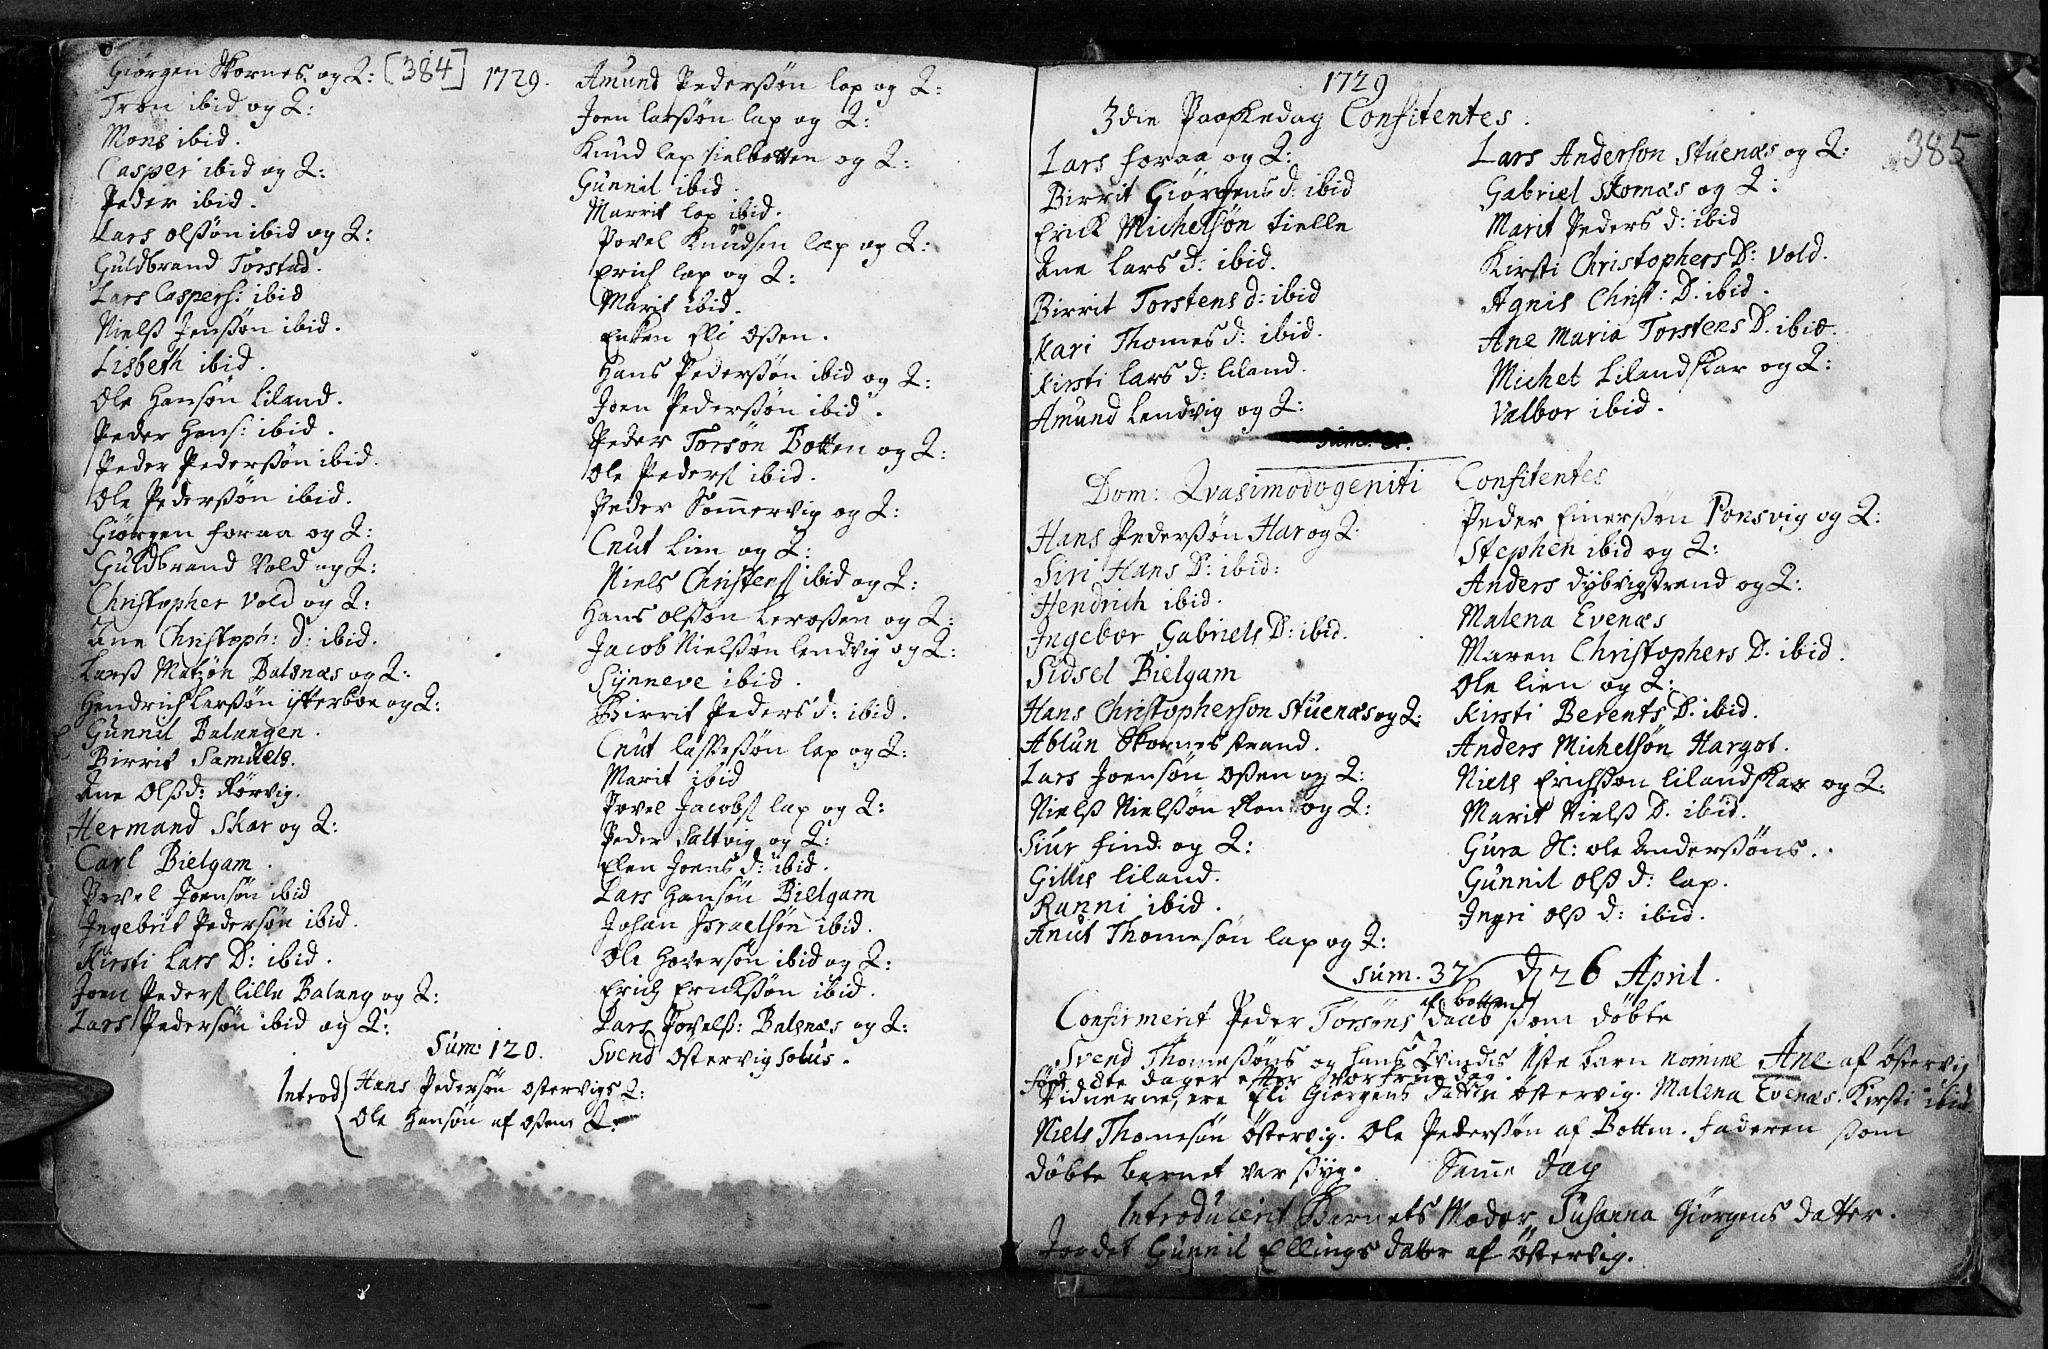 Giørgen Skornes og Q: [384] 1729.
Tron ibid og Q:
Mons ibid.
Casper ibid og Q:
Peder ibid.
Lars Olssøn ibid og Q:
Guldbrand Torstad.
Lars Caspers: ibid
Nielss Jenssøn ibid.
Lisbeth ibid.
Ole Hansøn Liland.
Peder Hans: ibid.
Peder Pederssøn ibid.
Ole Pederssøn ibid.
Giørgen foraa og Q:
Guldbrand Vold og Q:
Christopher Vold og Q:
Ane Christoph: D: ibid.
Larss Matzøn Balsnæs og Q:
Hendrich Larssøn ÿtterboe og Q:
Gunnil Balangen.
Birrit Samuels.
Ane Olss d: Rørvig.
Hermand Skar og Q:
Carl Bielgam.
Povel Joensøn ibid
Ingebrit Pedersøn ibid.
Kirsti Lars D: ibid.
Joen Peders lille Balang og Q:
Lars Pedersøn ibid og Q:
Sum: 120.
Introd Hans Pedersøn Ostervigs Q:
Ole Hansøn af Osens Q:
Amund Pederssøn lap og Q:
Joen larssøn lap og Q:
Knud lap sielbotten og Q:
Gunnil ibid.
Marrit lap ibid.
Povel Knudsen lap og Q:
Erich lap og Q:
Marit ibid.
Enken Eli Ossen.
Hans Pederssøn ibid og Q:
Joen Pederssøn ibid.
Peder Torsøn Botten og Q:
Ole Peders ibid.
Peder Sommervig og Q:
Cnut Lien og Q:
Niels Christens ibid og Q:
Hans Olssøn Lerossen og Q:
Jacob Nielssøn lendvig og Q:
Synneve ibid.
Birrit Peders d: ibid.
Cnut lassessøn lap og Q:
Marit ibid
Povel Jacobs lap og Q:
Peder Saltvig og Q:
Elen Joens d: ibid.
Lars Hansøn Bielgam
Johan Israelsøn ibid.
Ole Hoversøn ibid og Q:
Erich Erickssøn ibid.
Lars Povelss: Balsnæs og Q:
Svend Ostervig solus.
1729
385
3die Paaskedag Confitentes.
Lars foraa og Q:
Birrit Giørgens d: ibid
Erick Michelsøn tielle
Ane Lars d: ibid.
Birrit Torstens d: ibid
Kari Thomes d: ibid.
Kirsti Lars d: liland.
Amund Lendvig og Q:
Lars Anderson Stuenæs og Q:
Gabriel Skornæs og Q:
Marit Peders d: ibid
Kirsti Christophers D: Vold.
Agnis Christ: D. ibid.
Ane Maria Torstens D. ibid.
Michel Lilandskar og Q:
Valbor ibid.
Dom: Qvasimodogeniti Confitentes
Hans Pederssøn Har og Q:
Siri Hans D: ibid:
Hendrich ibid.
Ingebor Gabriels D: ibid.
Sidsel Bielgam
Hans Christopherson Stuenæs og Q:
Ablun Skornesstrand.
Lars Joensøn Ossen og Q:
Nielss Nielssøn og Q:
Siur find og Q:
Gillis Liland.
Ranni ibid.
Knut Thomesøn lap og Q:
Peder Einerssøn Ponsvig og Q:
Stephen ibid og Q:
Anders dybvigstrand og Q:
Malena Evenæs
Maren Christophers D. ibid.
Ole lien og Q:
Kirsti Berents D. ibid.
Anders Michelsøn Hargot.
Niels Erichssøn Lilandskar og Q:
Marit Nielss D. ibid.
Gura N: ole Anderssøns.
Gunnil Olss d: lap.
Ingri Olss d: ibid.
Sum. 37 d 26 April.
af botten
Confirmerit Peder Torsøns daab som døbte
Svend Thomessøns og hans Qvindis barn nomine Ane af Østervig
født 8te dager efter
Vidnerne, ere Eli Giørgens datter Østervig. Malena Evenæs. Kirsti ibid.
Niels Thomesøn Østervig. Ole Pederssøn af Botten. faderen som
døbte barnet var syg. Samme dag
Introducerit Barnets Moder Susanna Giørgens datter.
Jordet Gunnil Ellings datter af Østervig.